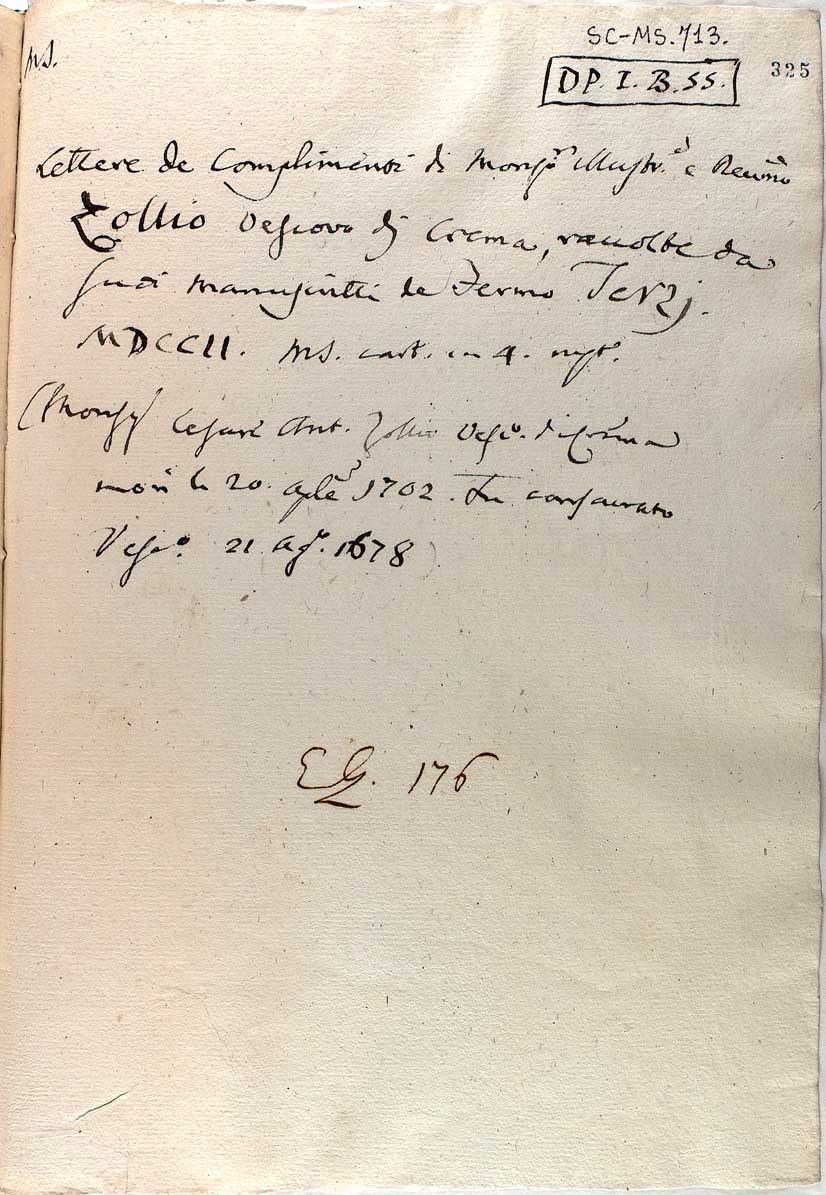 SC-MS. 713.
MS.
DP. I. B. SS.
325
Lettere de Complimenti di Monsr. Illustr.e e Revmo
Zollio Vescovo di Crema, raccolte da
suoi manuscritti da Fermo Terzj.
MDCCII. MS. cart. in 4.
(Monsr Cesare Ant. Zollio Vesco. di Crema
morì li 20 aple 1702. Fu consacrato
Vesco. 21 ago. 1678)
EG. 176